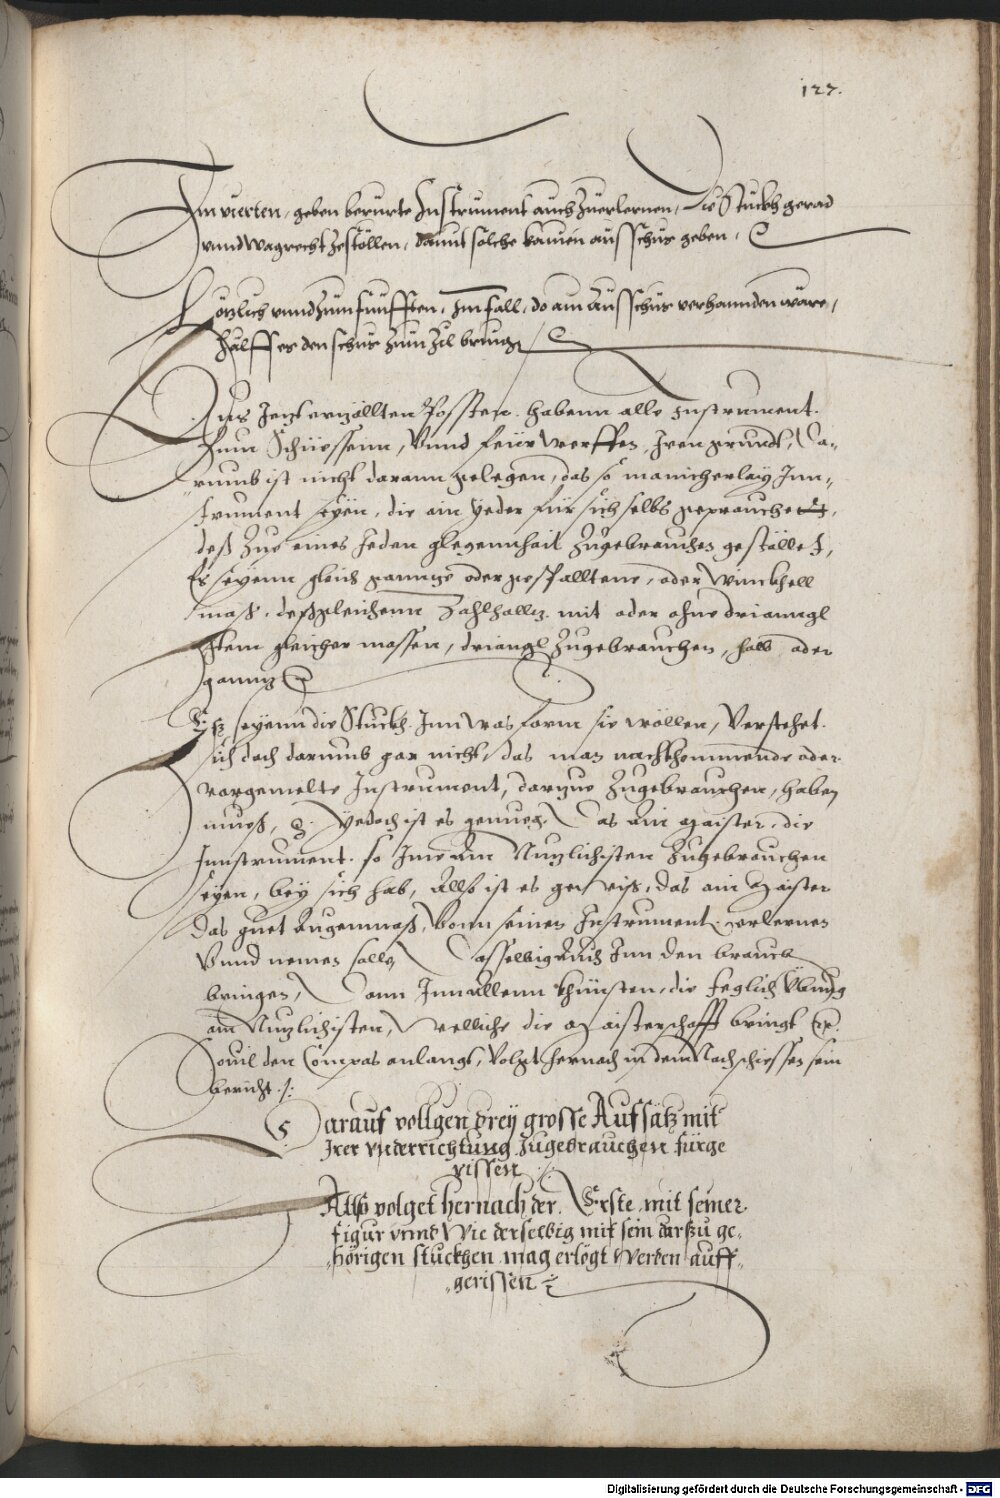 127.
Zum vierten, geben berurte Instrument auch zuerlernen, Die Stuckh gerad
vnnd wagrecht zestöllen, damit solche kainen ausschus geben.
Lötzlich vnnd zum fünfften, Im fall, do ain Ausschus verhannden wäre,
hülff es den schus zum Zil bringen
Aus Jetzt erzällten Possten habenn alle Instrument.
Zum Schiessenn, Vnnd feürwerffen, Iren grundt, Da-
rumb ist nicht darann gelegen, das so manicherlay Inn-
strument seyen, die ain yeder für sich selbs gepraucht,
deß Zue eines Jeden glegennhait Zugebrauchen gestället,
Es seyenn gleich gannze oder gespalltene, oder Winckhell
mass, deßgleichenn mit oder ohne drianngl
Item gleicher massen, driangl Zugebrauchen, halb oder
gannz
Es seyenn die Stuckh Inn was form sie wöllen, Verstehet
sich doch darumb gar nicht, das man nachkhommende oder
vorgemelte Instrument, darzue Zugebrauchen, haben
mueß, Yedoch ist es genueg, Das ain Maister, die
Innstrument so Ime am Nuzlichisten Zugebrauchen
seyen, bey sich hab, Allso ist es gewiß, das ain Maister
das guet Augenmaß, Vonn seinen Instrument erlernen
Vnnd nemen solle, Dasselbig auch Inn den brauch
bringen, Dann Inn allenn khünsten, die teglich Übung
am Nuzlichisten, Welliche die Maisterschafft bringt
Souil den Compas anlangt, Volgt hernach in dem Nachschiessen sein
bericht
Darauf vollgen drey grosse Aufsätz mit
Irer vnderrichtung zugebrauchen fürge
rissen
Allso volget hernach der Erste mit seiner
figur vnnd Wie derselbig mit sein darzu ge-
hörigen stuckhen mag erlögt Werden auff
gerissen
Digitalisierung gefördert durch die Deutsche Forschungsgemeinschaft - DFG